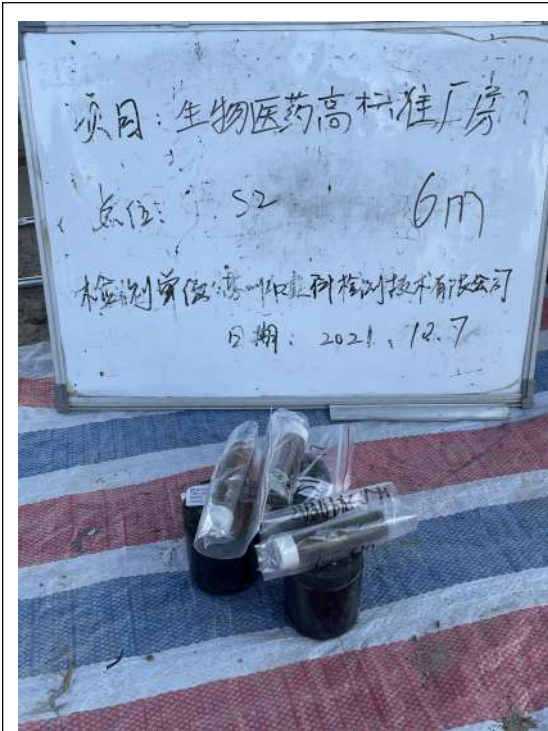 项目：生物医药高标准厂房
点位： S2 6m
检测单位： 检测技术有限公司
日期： 2021.12.7